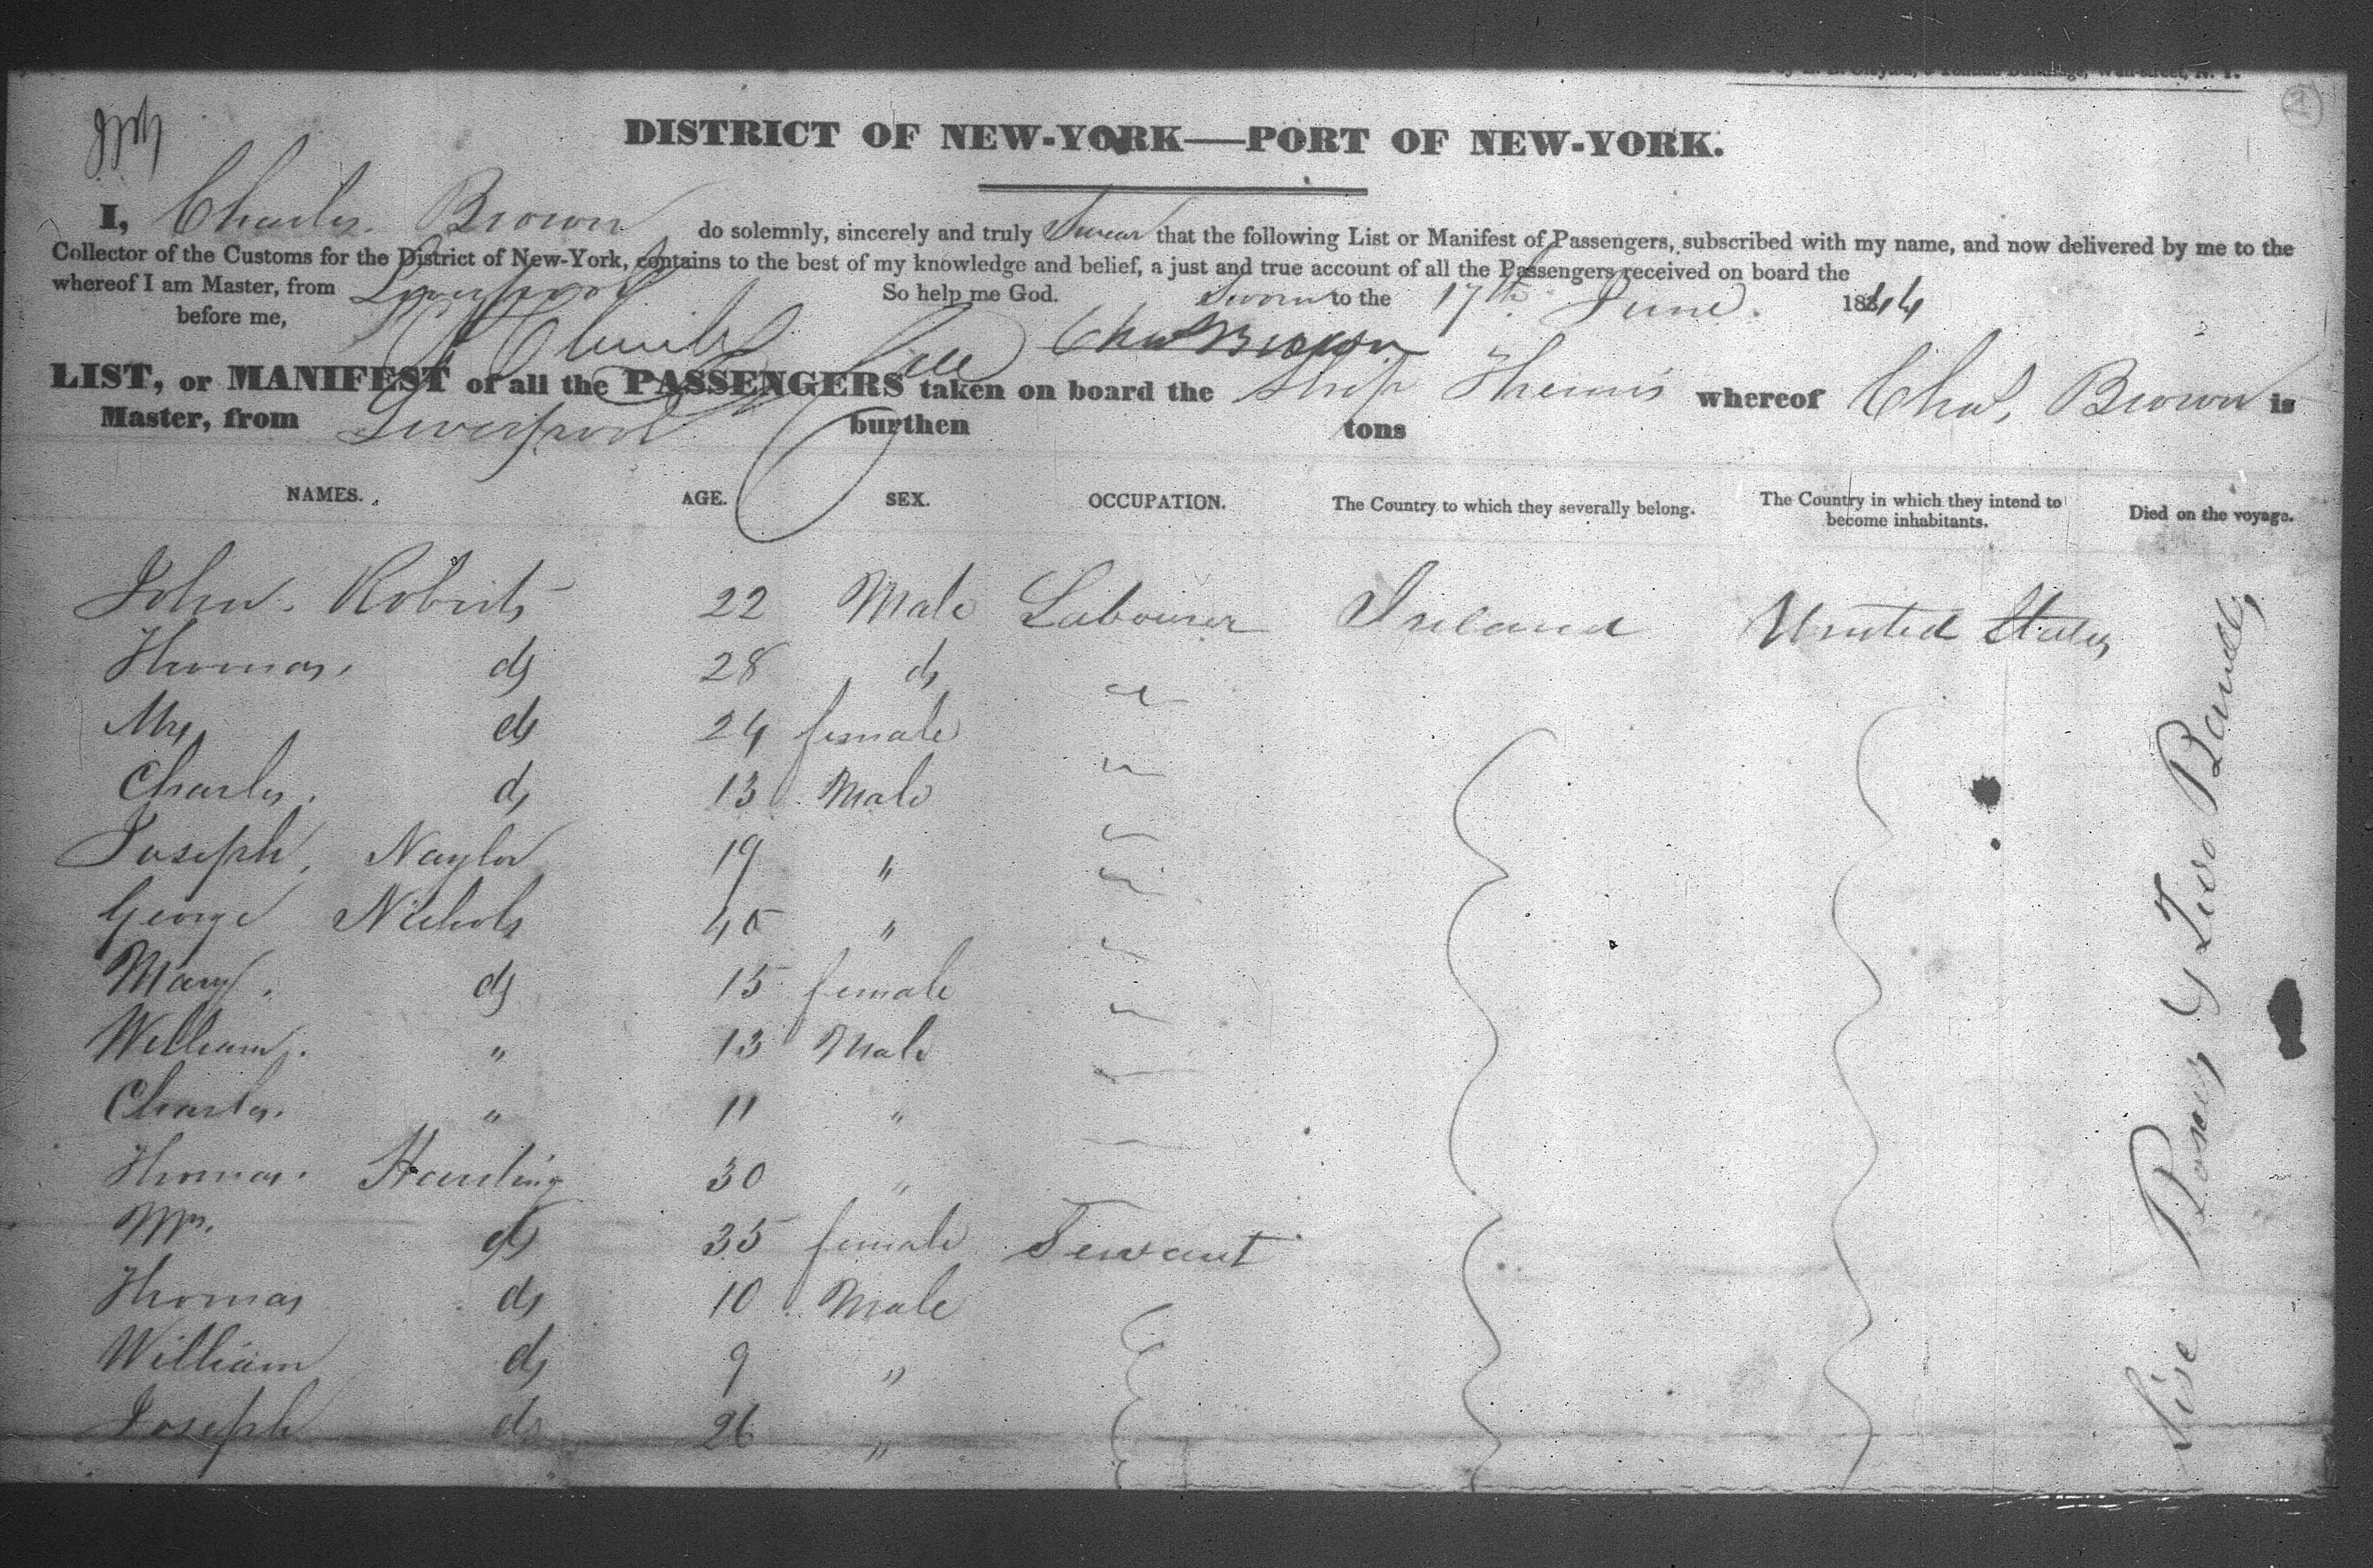 DISTRICT OF NEW-YORK—PORT OF NEW-YORK.
I, Charles Brown do solemnly, sincerely and truly Swear that the following List or Manifest of Passengers, subscribed with my name, and now delivered by me to the
Collector of the Customs for the District of New-York, contains to the best of my knowledge and belief, a just and true account of all the Passengers received on board the
whereof I am Master, from Liverpool So help me God. Sworn to the 17th June 1844
before me, Chas Brown
LIST, or MANIFEST of all the PASSENGERS taken on board the Ship Themis whereof Chas, Brown is
Master, from Liverpool burthen tons
NAMES. AGE. SEX. OCCUPATION. The Country to which they severally belong. The Country in which they intend to become inhabitants. Died on the voyage.
John Roberts 22 Male Labourer Ireland United States
Thomas do 28 do
Mrs do 24 female
Charles do 13 Male
Joseph Naylor 19 "
George Nichols 45 "
Mary do 15 female
William " 13 Male
Charles " 11 "
Thomas Harding 30 "
Mrs. do 35 female Servant
Thomas do 10 Male
William do 9 "
Joseph do 26 "
Two